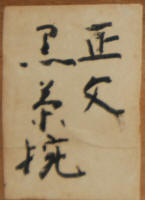 正文
黒茶碗